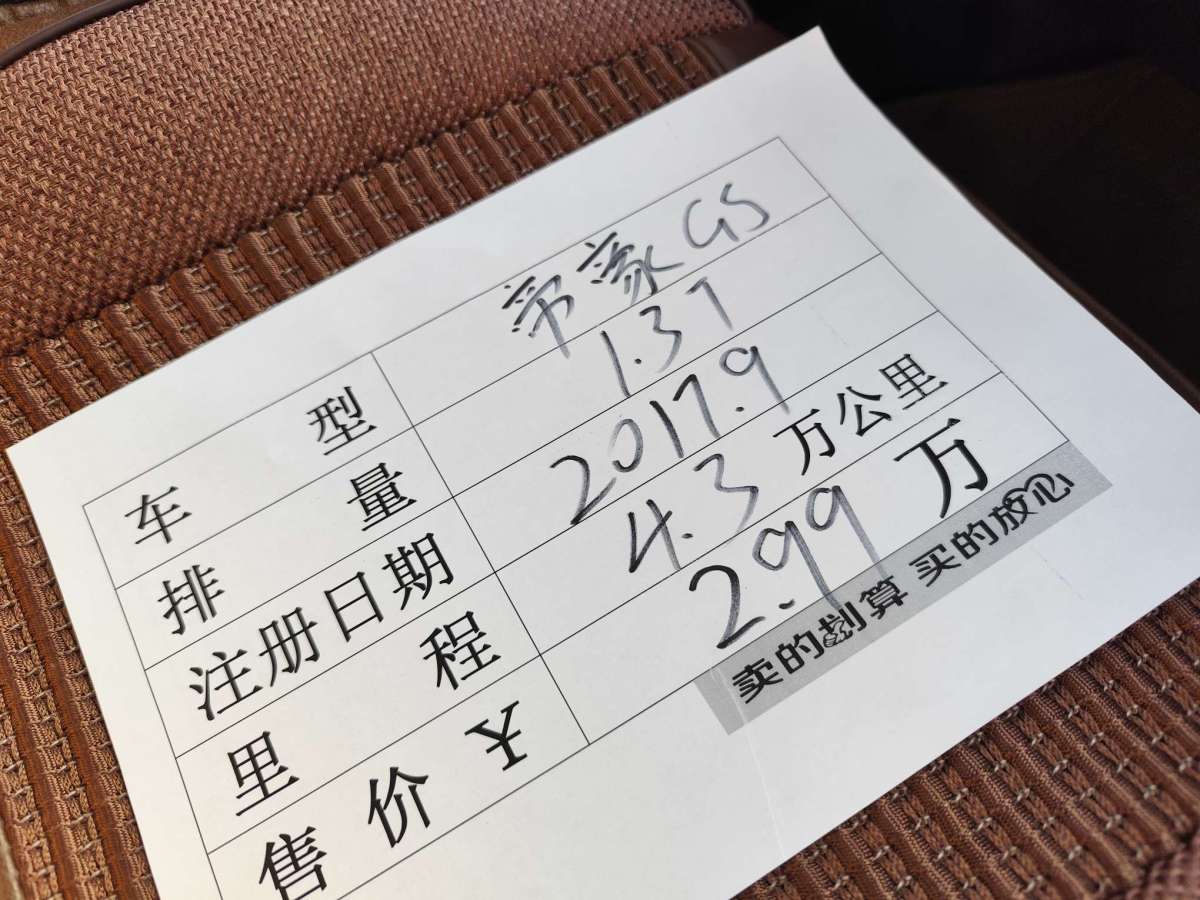 车型 帝豪GS
排量 1.3T
注册日期 2017.9
里程 4.3万公里
售价¥ 2.99万
卖的划算 买的放心